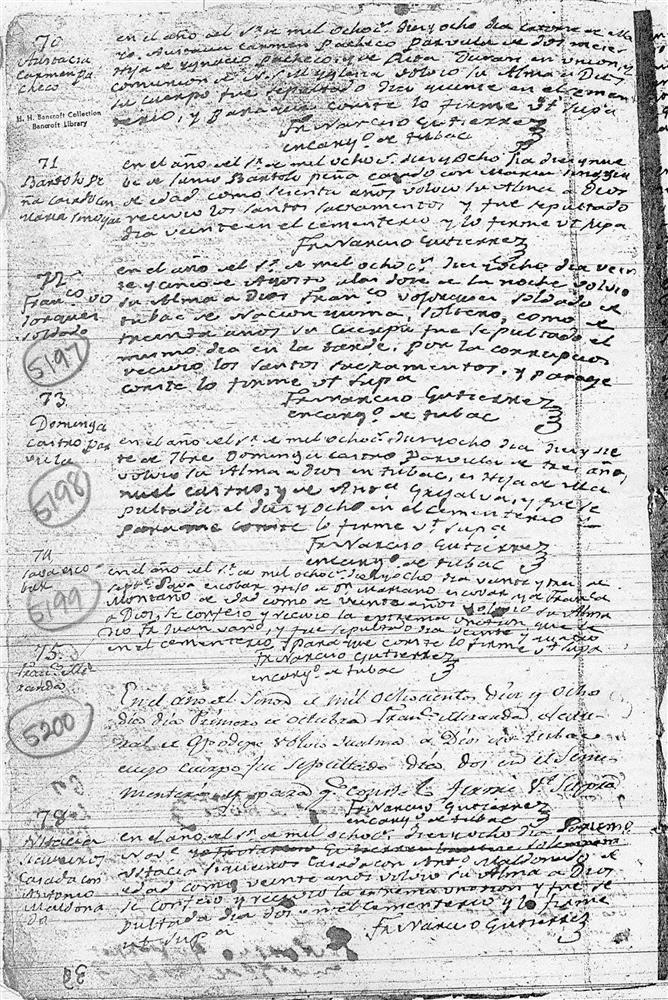 70
Anastacia
Carmen Pa
checo
H. H. Bancroft Collection
Bancroft Library
en el año del Sr. de mil ochoc. diez y ocho dia catorce de
Carmen Pacheco Parvula de dos meses
Hija de Ygnacio Pacheco, y de Duran en union, y
comunion de N. S. M. Yglesia volvio su Alma a Dios
su cuerpo fue sepultado dia quinte en el cemen
terio, y para que conste lo firme ut supa
Fr. Narciso Gutierrez
encargo. de tubac
71
Bartolo Pe
ña casado con
Maria
en el año del Sr. de mil ochoc. diez y ocho dia diez y nue
be de Junio Bartolo Peña casado con Maria
de edad como años volvio su Alma a Dios
recivio los santos sacramentos y fue sepultado
dia veinte en el cementerio y lo firme ut supa
Fr. Narciso Gutierrez
72
Franco. Vo
soldado
5197
en el año del Sr. de mil ochoc. diez y ocho dia vein
te y cinco de Agosto a las dose de la noche volvio
su Alma a Dios Franco. soldado de
tubac de Nacion soltero, como de
treinta años su cuerpo fue sepultado el
mismo dia en la tarde, por la corrupcion
recivio los santos sacramentos, y paraqe
conste lo firme ut supa
Fr. Narciso Gutierrez
encargo. de tubac
73
Dominga
Castro par
vula
5198
en el año del Sr. de mil ochoc. diez y ocho dia diez y sie
te de Dominga Castro Parvula de tres años
volvio su Alma a Dios en tubac, es Hija de Ma
nuel Castro, y de Anta Grijalva, y fue se
pultada el diez y ocho en el cementerio
paraqe conste lo firme ut supa
Fr. Narciso Gutierrez
encargo. de tubac
74
esco
bar
5199
en el año del Sr. de mil ochoc. diez y ocho dia veinte y tres de
Septe. escobar Hijo de Dn. Mariano escovar y de Franca
Montaño de edad como de veinte años volvio su Alma
a Dios, se confeso y recivio la extrema uncion que le
dio Fr. Juan Vaño, y fue sepultado dia veinte y quatro
en el cementerio, paraque conste lo firme ut supa
Fr. Narciso Gutierrez
encargo. de tubac
75
Franca. Mi
randa
5200
En el año del Señor de mil Ochocientos diez y Ocho
dia Primero de Octubre Franca. Miranda
de volvio su alma a Dios en tubac
cuyo cuerpo fue sepultado dia dos en el Seme
menterio y para qe conste lo firmé Ut Supra
Fr. Narciso Gutierrez
encargo. de tubac
78
Siqueiros
Casada con
Antonio
Maldona
do
en el año del Sr. de mil ochoc. diez y ocho dia Primero
Nove
Siqueiros Casada con Anto. Maldonado de
edad como veinte años volvio su Alma a Dios
se confeso y recivio la extrema uncion y fue se
pultada dia dos en el Cementerio y lo firme
ut supa
Fr. Narciso Gutierrez